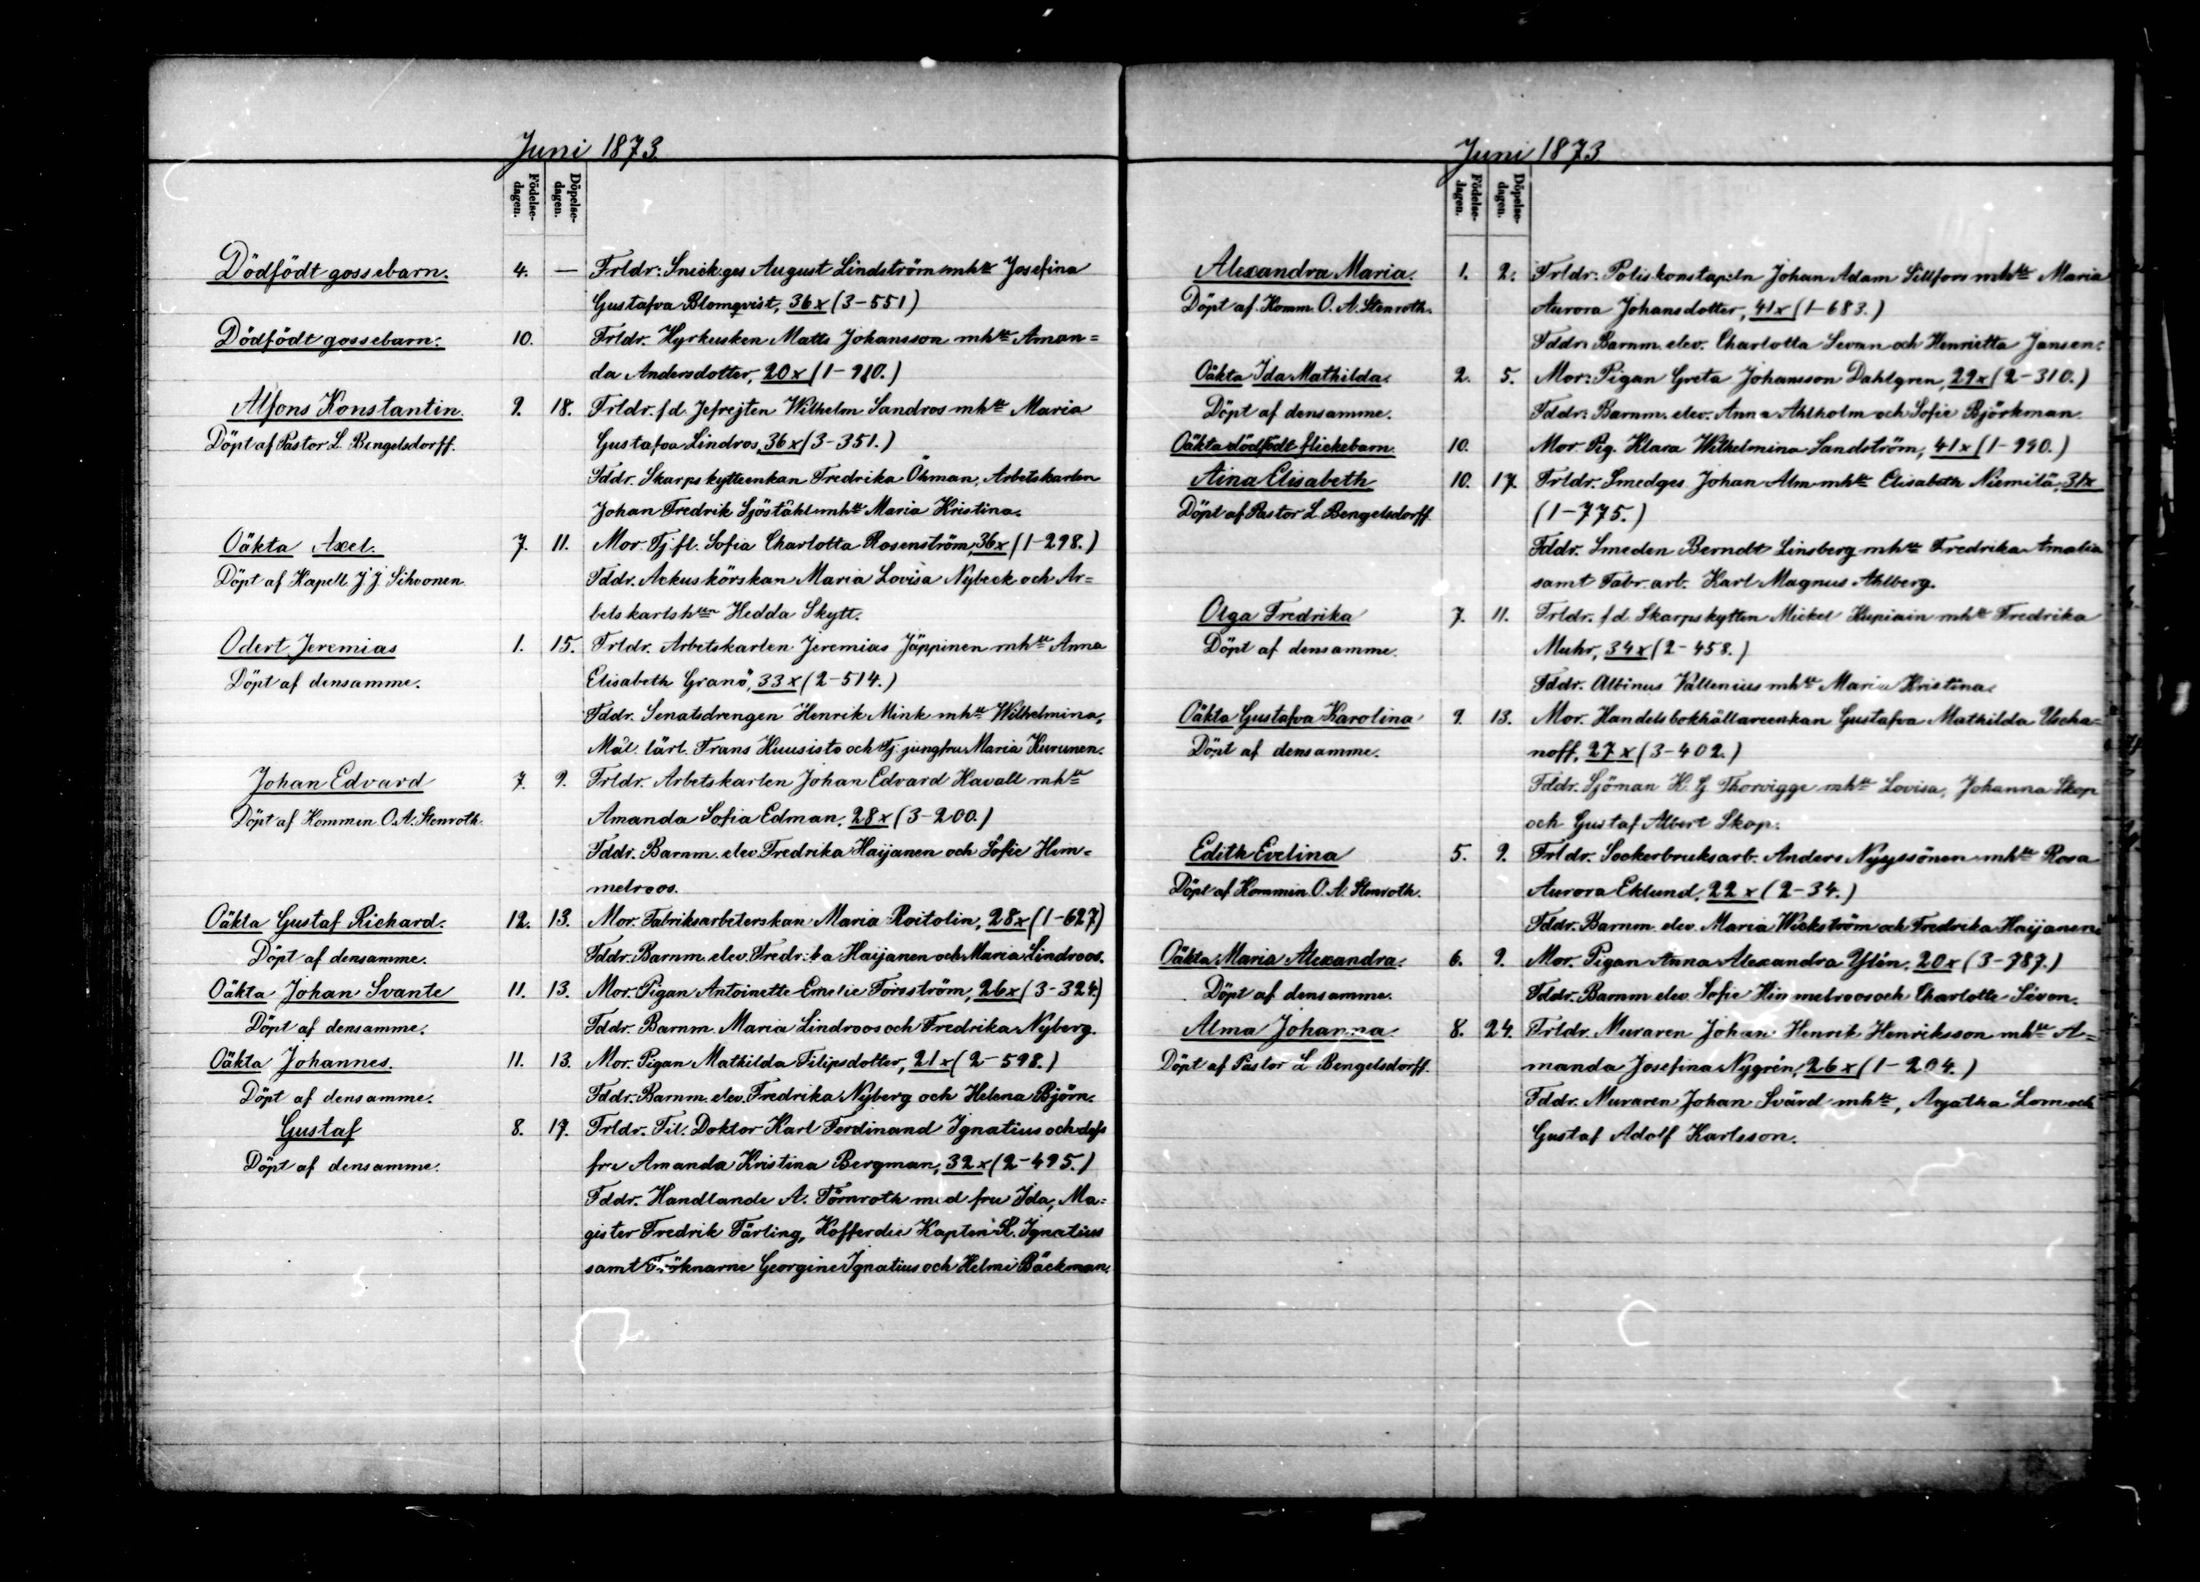 Juni 1873
Födelse-
dagen.
Döpelse-
dagen.
Dödfödt gossebarn. 4. — Frldr: Snick.ges August Lindström mhu Josefina
Gustafva Blomqvist, 36x (3-551)
Dödfödt gossebarn. 10. Frldr. Hyrkusken Matts Johansson mhu Aman=
da Andersdotter, 20x (1-910.)
Alfons Konstantin. 9. 18. Frldr. f d Jefrejten Wilhelm Sandros mhu Maria
Döpt af Pastor L. Bengelsdorff. Gustafva Lindros, 36x (3-351.)
Fddr. Skarpskytteenkan Fredrika Öhman, Arbetskarlen
Johan Fredrik Sjöståhl mhu Maria Kristina.
Oäkta Axel. 7. 11. Mor. Tj.fl. Sofia Charlotta Rosenström, 36x (1-298.)
Döpt af Kapell. J J Sihvonen. Fddr. Ackuskörskan Maria Lovisa Nybeck och Ar=
betskarlshun Hedda Skytt.
Odert Jeremias 1. 15. Frldr. Arbetskarlen Jeremias Jäppinen mhu Anna
Döpt af densamme. Elisabeth Granö, 33x (2-514.)
Fddr. Senatsdrengen Henrik Mink mhu Wilhelmina,
Mål. lärl. Frans Huusisto och Tj. jungfru Maria Kurunen.
Johan Edvard 7. 9. Frldr. Arbetskarlen Johan Edvard Havall mhu
Döpt af Kommin. O. A. Stenroth. Amanda Sofia Edman, 28x (3-200.)
Fddr. Barnm. elev. Fredrika Haijanen och Sofie Him=
melroos.
Oäkta Gustaf Richard. 12. 13. Mor. Fabriksarbeterskan Maria Roitolin, 28x (1-627)
Döpt af densamme. Fddr. Barnm. elev. Fredr:ka Haijanen och Maria Lindroos.
Oäkta Johan Svante 11. 13. Mor. Pigan Antoinette Emelie Forsström, 26x (3-324)
Döpt af densamme. Fddr. Barnm. Maria Lindroos och Fredrika Nyberg.
Oäkta Johannes. 11. 13. Mor. Pigan Mathilda Filipsdotter, 21x (2-598.)
Döpt af densamme. Fddr. Barnm. elev. Fredrika Nyberg och Helena Björn.
Gustaf 8. 17. Frldr. Fil. Doktor Karl Ferdinand Ignatius och dess
Döpt af densamme. fru Amanda Kristina Bergman, 32x (2-495.)
Fddr. Handlande A. Törnroth med fru Ida, Ma=
gister Fredrik Färling, Kofferdie Kapten K. Ignatius
samt Fröknarne Georgine Ignatius och Helmi Bäckman.
Juni 1873
Födelse-
dagen.
Döpelse-
dagen.
Alexandra Maria. 1. 2. Frldr: Poliskonstapeln Johan Adam Sillfors mhu Maria
Döpt af Komm. O. A. Stenroth. Aurora Johansdotter, 41x (1-683.)
Fddr. Barnm. elev. Charlotta Sevan och Henrietta Jansen.
Oäkta Ida Mathilda. 2. 5. Mor: Pigan Greta Johansson Dahlgren, 29x (2-310.)
Döpt af densamme. Fddr: Barnm. elev. Anna Ahlholm och Sofie Björkman.
Oäkta dödfödt flickebarn 10. Mor. Pig. Klara Wilhelmina Sandström, 41x (1-990.)
Aina Elisabeth 10. 17. Frldr. Smedges Johan Alm mhu Elisabeth Niemilä, 31x
Döpt af Pastor L. Bengelsdorff. (1-775.)
Fddr. Smeden Berndt Linsberg mhu Fredrika Amalia
samt Fabr. arb. Karl Magnus Ahlberg.
Olga Fredrika 7. 11. Frldr. f d Skarpskytten Mickel Kupiain mhu Fredrika
Döpt af densamme. Muhr, 34x (2-458.)
Fddr. Albinus Vallenius mhu Maria Kristina.
Oäkta Gustafva Karolina 9. 13. Mor. Handelsbokhållareenkan Gustafva Mathilda Uscha=
Döpt af densamme. noff, 27x (3-402.)
Fddr. Sjöman K. G Thorvigge mhu Lovisa, Johanna Skop
och Gustaf Albert Skop.
Edith Evelina 5. 9. Frldr. Sockerbruksarb. Anders Nyyssönen mhu Rosa
Döpt af Kommin. O. A. Stenroth. Aurora Eklund, 22x (2-34.)
Fddr. Barnm. elev. Maria Wickström och Fredrika Haijanen.
Oäkta Maria Alexandra. 6. 9. Mor. Pigan Anna Alexandra Ylén, 20x (3-787.)
Döpt af densamme. Fddr. Barnm. elev. Sofie Himmelroos och Charlotte Sévon.
Alma Johanna 8. 24. Frldr. Muraren Johan Henrik Henriksson mhu A=
Döpt af Pastor L. Bengelsdorff. manda Josefina Nygrén, 26x (1-204.)
Fddr. Muraren Johan Svärd mhu, Agatha Lom och
Gustaf Adolf Karlsson.